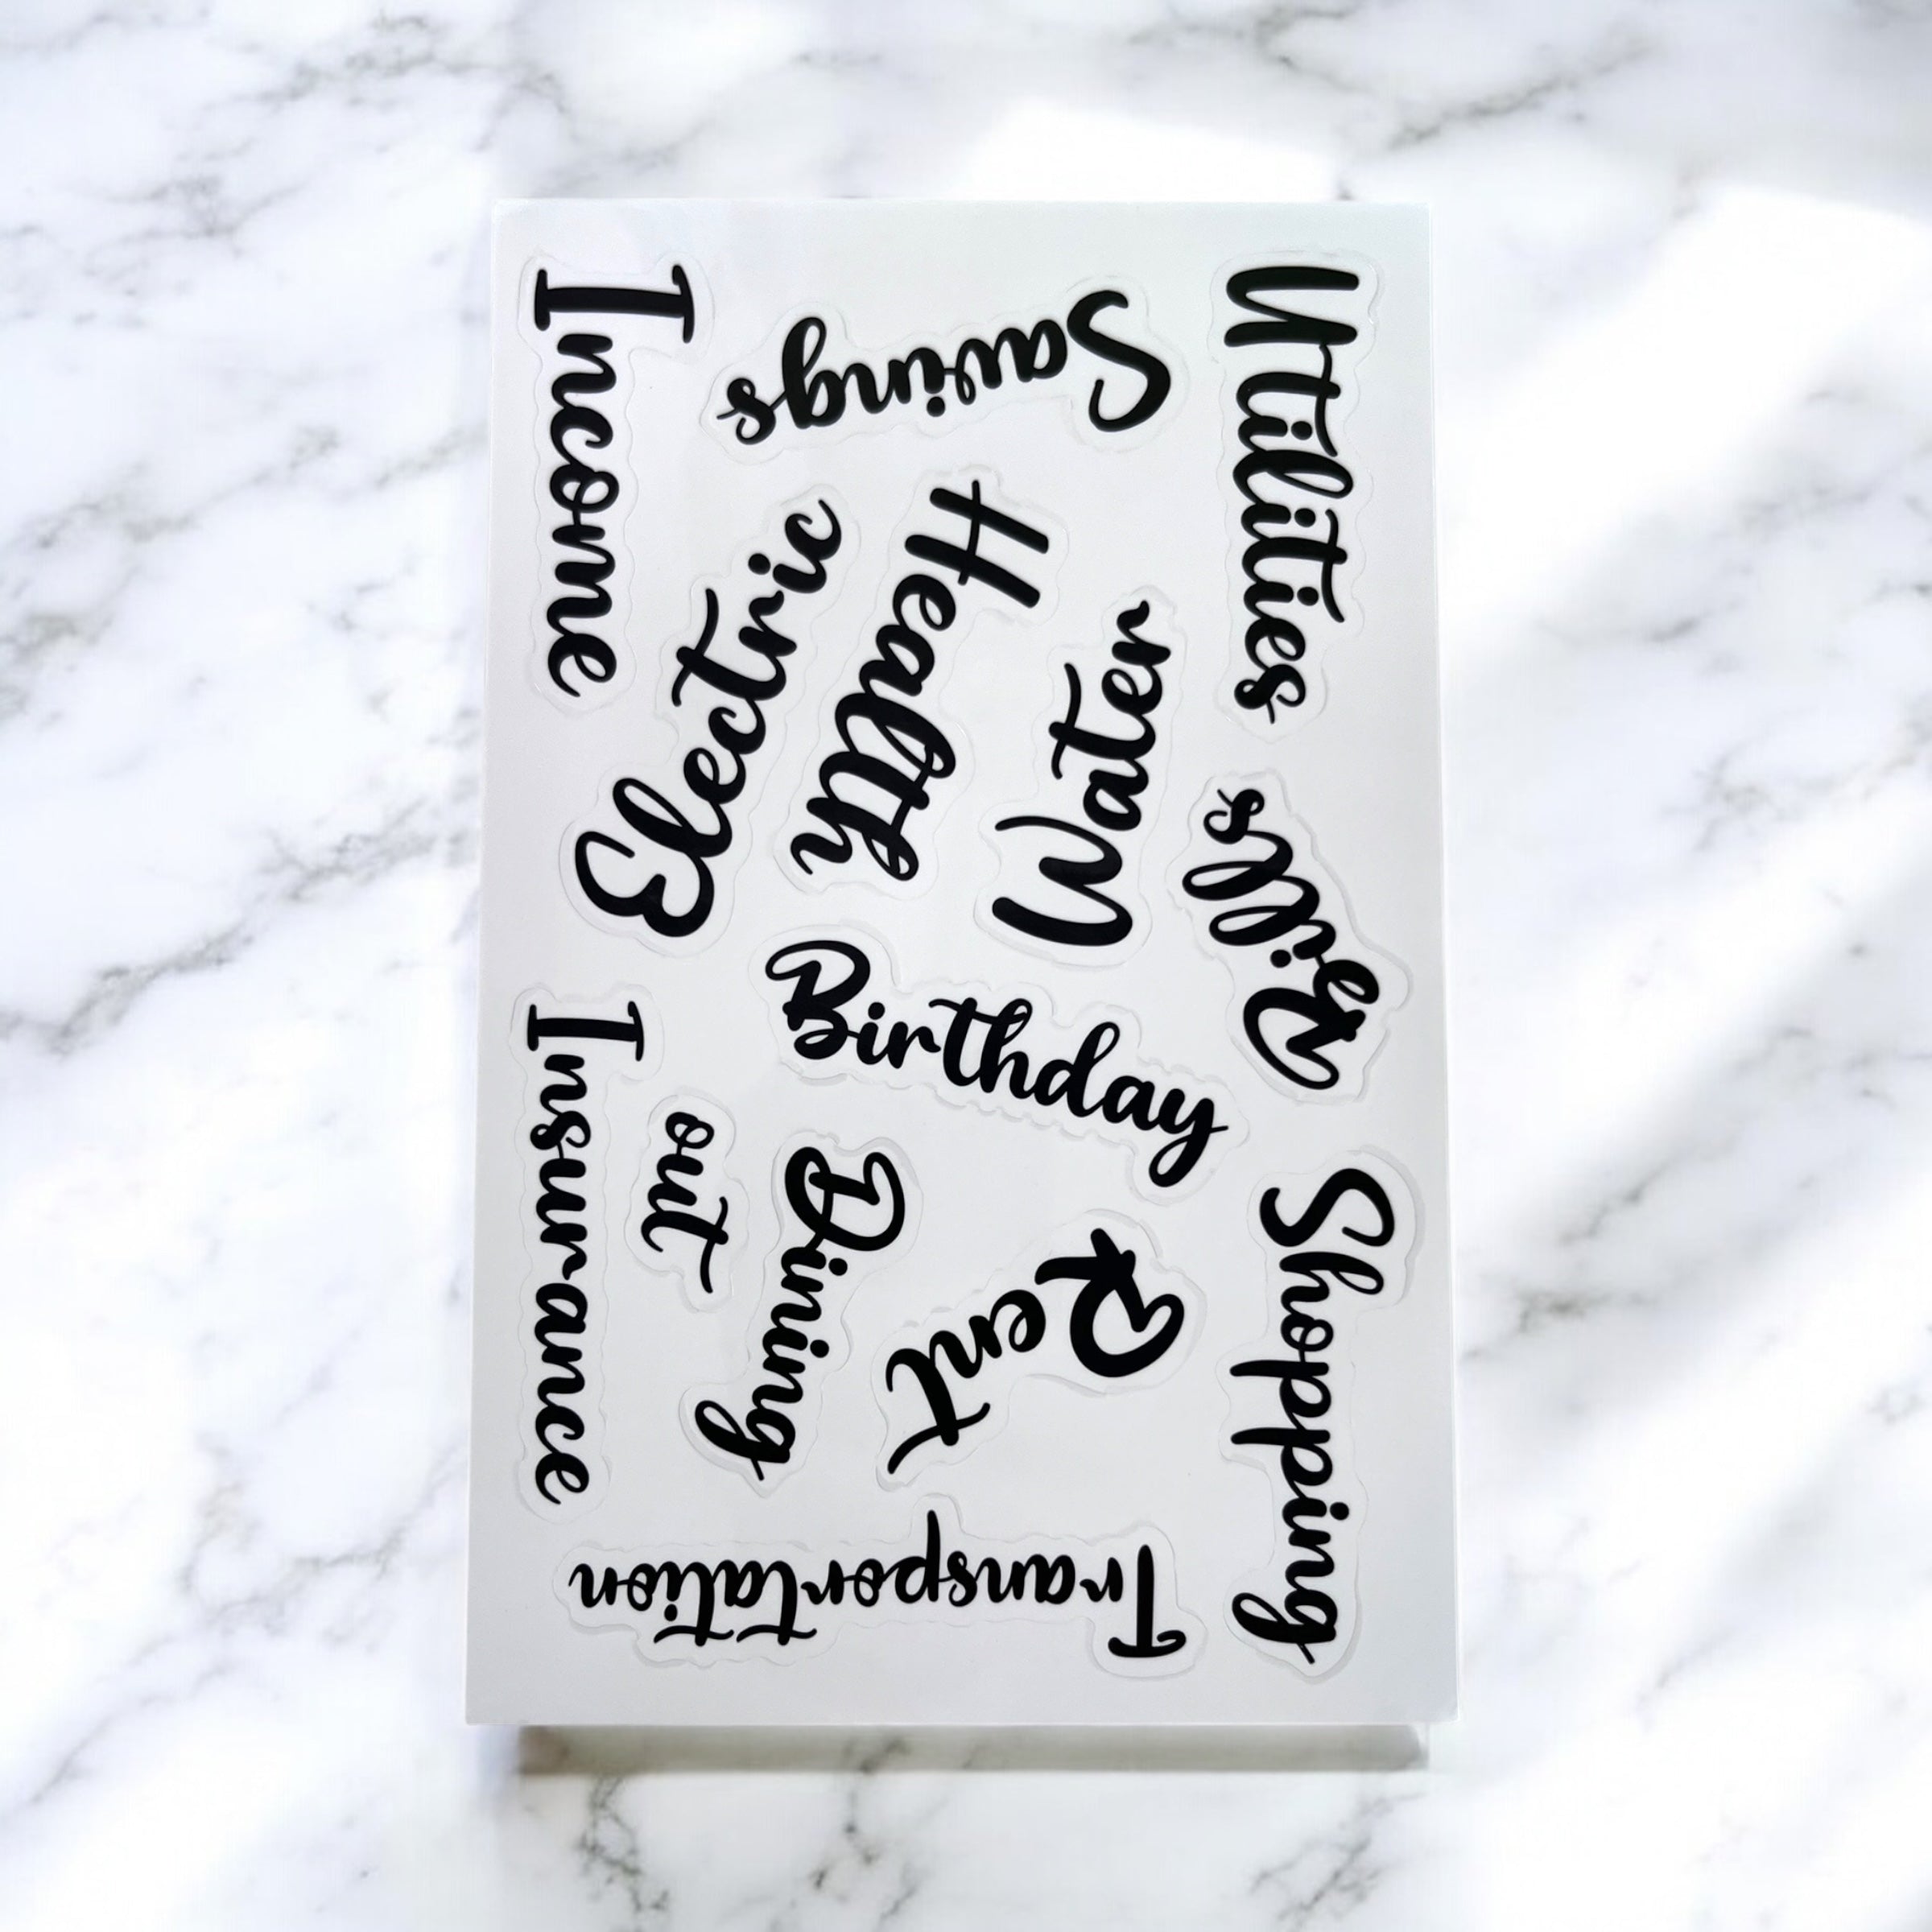 Income
Savings
Utilities
Electric
Health
Water
Bills
Birthday
Insurance
Dining
out
Rent
Shopping
Transportation